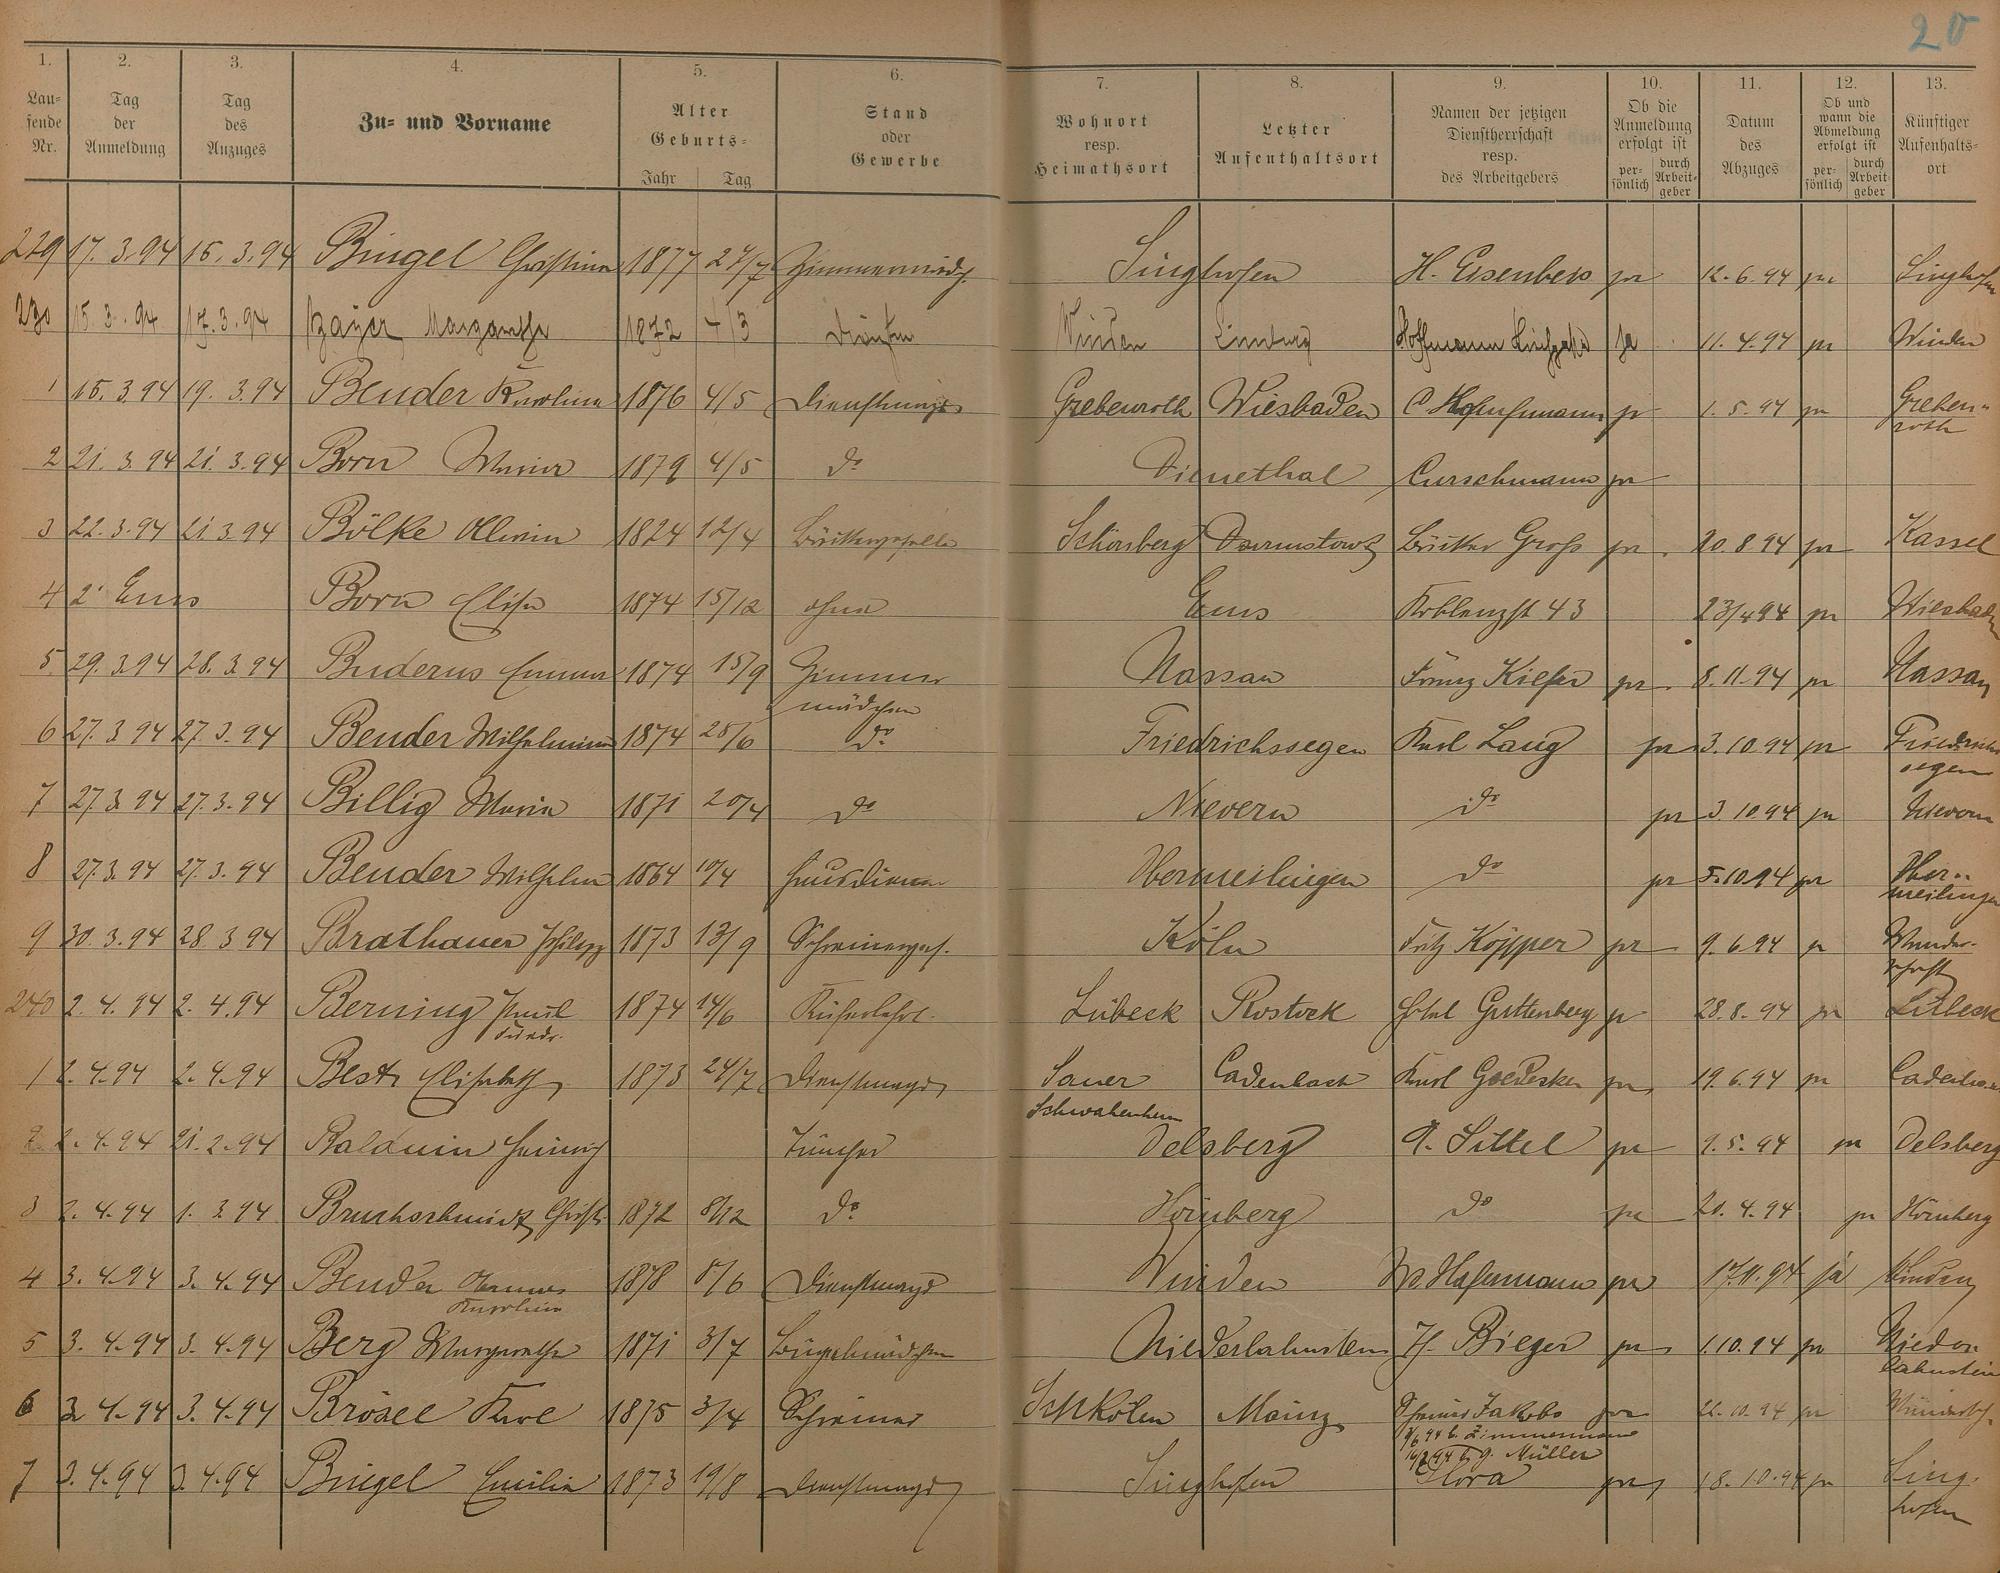 20
1. 2. 3. 4. 5. 6. 7. 8. 9. 10. 11. 12. 13.
Lau=
fende
Nr.
Tag
der
Anmeldung
Tag
des
Anzuges
Zu- und Vorname
Alter
Geburts=
Jahr Tag
Stand
oder
Gewerbe
Wohnort
resp.
Heimathsort
Letzter
Aufenthaltsort
Namen der jetzigen
Dienstherrschaft
resp.
des Arbeitgebers
Ob die
Anmeldung
erfolgt ist
per=
sönlich
durch
Arbeit=
geber
Datum
des
Abzuges
Ob und
wann die
Abmeldung
erfolgt ist
per=
sönlich
durch
Arbeit
geber
Künftiger
Aufenhalts=
ort
229 17. 3. 94 15. 3. 94 Bingel Christina 1877 27/7 Zimmermädch. Singhofen H. Eisenbeis 12. 6. 94 Singhofen
230 15. 3. 94 17. 3. 94 Bayer Margarethe 1872 4/3 Winden Limburg Hoffmann ja 11. 4. 94 Winden
1 15. 3. 94 19. 3. 94 Bender Karolina 1876 4/5 Dienstmagd Grebenroth Wiesbaden 1. 5. 94 Greben=
roth
2 21. 3. 94 21. 3. 94 Born Maria 1879 4/5 do Dienethal Curschmann
3 22. 3. 94 21. 3. 94 Bölke 1824 12/4 Bäckergeselle Schönberg Bäcker Groß 20. 8. 94 Kassel
4 Ems Born Elise 1874 15/12 ohne Ems Koblenzst 43 23/4 94 Wiesbaden
5 29. 3. 94 28. 3. 94 Buderus Emma 1874 15/9 Zimmer Nassau Franz Kiefer 8. 11. 94 Nassau
mädchen
6 27. 3. 94 27. 3. 94 Bender Wilhelmina 1874 28/6 do Friedrichssegen Karl Lang 3. 10. 94 Friedrichs
segen
7 27. 3. 94 27. 3. 94 Billig Maria 1871 20/4 do Nievern do 3. 10. 94 Nievern
8 27. 3. 94 27. 3. 94 Bender Wilhelm 1864 10/4 Hausdiener Obermeilingen do 5. 10. 94 Ober=
meilingen
9 30. 3. 94 28. 3. 94 Brathauer Philipp 1873 13/9 Schreinerges. Köln Fritz Köpper 9. 6. 94 Wander-
schaft
240 2. 4. 94 2. 4. 94 Berning Paul 1874 14/6 Lübeck Rostock Hotel Guttenberg 28. 8. 94 Lübeck
Friedr.
1 2. 4. 94 2. 4. 94 Best Elisabeth 1873 24/7 Dienstmagd Sauer Cadenbach Karl Goedecker 19. 6. 94 Cadenbach
Schwabenheim
2 2. 4. 94 21. 2. 94 Balduin Heinrich Tüncher Delsberg A. Sittel 9. 5. 94 Delsberg
3 2. 4. 94 1. 3. 94 Bruchschmidt Christ. 1872 8/12 do Hömberg do 20. 4. 94 Hömberg
4 3. 4. 94 3. 4. 94 Bender 1878 8/6 Dienstmagd Winden 17. 11. 94 ja Winden
Karolina
5 3. 4. 94 3. 4. 94 Berg Margarethe 1871 3/7 Bügelmädchen Niederlahnstein H. Bieger 1. 10. 94 Nieder
lahnstein
6 3. 4. 94 3. 4. 94 Brösel Karl 1875 3/4 Schreiner Schkölen Mainz Schreiner Jakobs 22. 10. 94
Zimmermann
G. Müller
7 3. 4. 94 3. 4. 94 Bingel Emilie 1873 19/8 Dienstmagd Singhofen Flora 18. 10. 94 Sing
hofen